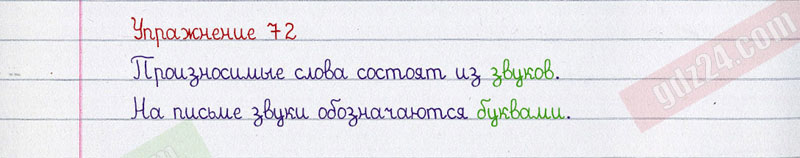 Упражнение 72
Произносимые слова состоят из звуков.
На письме звуки обозначаются буквами.
gdz24.com